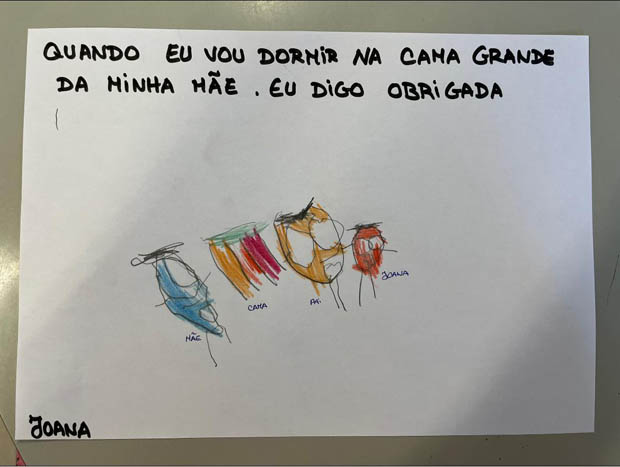 QUANDO EU VOU DORMIR NA CAMA GRANDE
DA MINHA MÃE. EU DIGO OBRIGADA
JOANA
CAMA
PAI
MÃE
JOANA